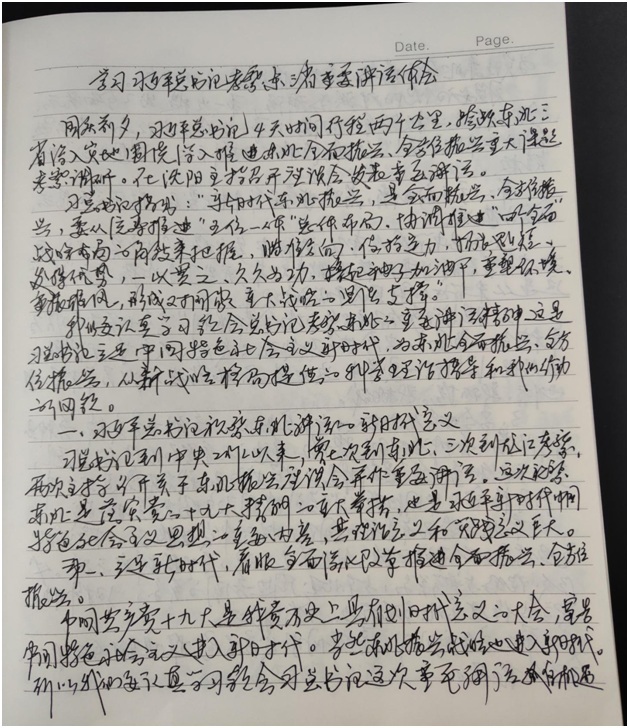 Date.        Page.
学习习近平总书记考察东三省重要讲话体会
国庆前夕，习近平总书记4天时间行程两千公里，跨越东北三
省深入实地围绕深入推进东北全面振兴、全方位振兴重大课题
考察调研。在沈阳主持召开座谈会发表重要讲话。
习总书记指出："新时代东北振兴，是全面振兴、全方位振
兴，要从统筹推进"五位一体"总体布局、协调推进"四个全面"
战略布局的角度来把握，瞄准方向、保持定力，扬长避短、
发挥优势，一以贯之、久久为功，撸起袖子加油干，重塑环境、
重振雄风，形成对国家重大战略的坚强支撑。"
我们要认真学习领会总书记考察东北的重要讲话精神，这是
习总书记立足中国特色社会主义新时代，为东北全面振兴、全方
位振兴，从新战略格局提供的科学理论指导和我们行动
的纲领。
一、习近平总书记视察东北讲话的新时代意义
习总书记到中央工作以来，曾七次到东北、三次到龙江考察，
两次主持召开关于东北振兴座谈会并作重要讲话。这次视察
东北是落实党的十九大精神的重大举措，也是习近平新时代中国
特色社会主义思想的重要内容，其理论意义和实践意义巨大。
第一、立足新时代，着眼全面深化改革推进全面振兴、全方位
振兴。
中国共产党十九大是我党历史上具有划时代意义的大会，宣告
中国特色社会主义进入新时代。当然东北振兴战略也进入新时代。
所以我们要认真学习领会习总书记这次重要讲话